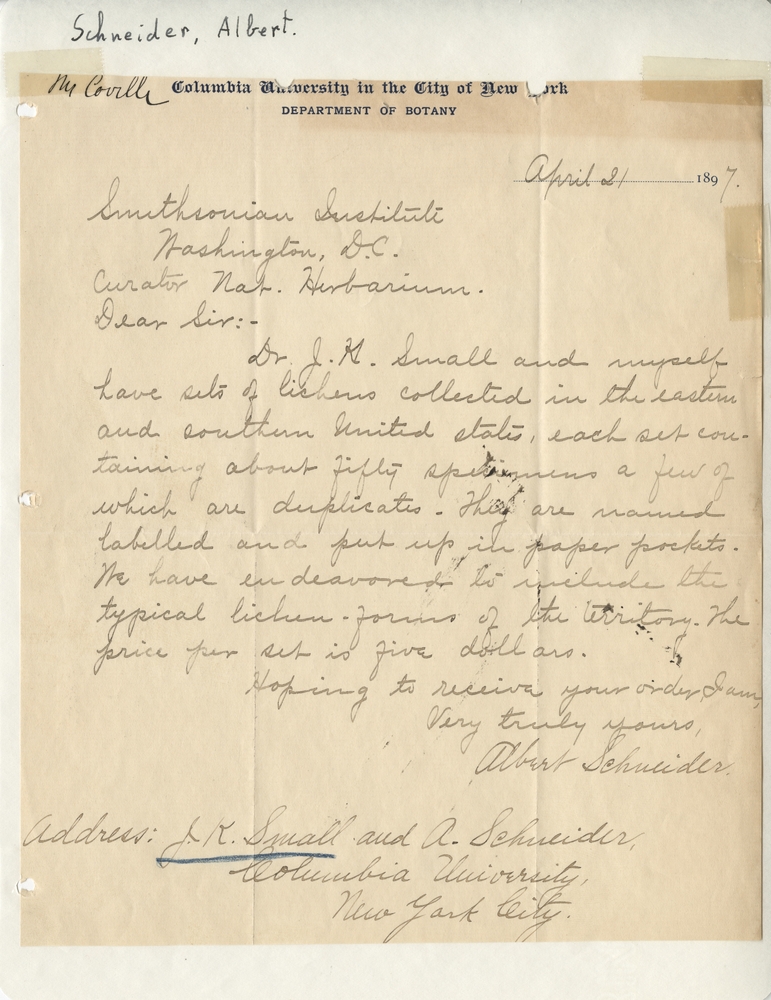 Schneider, Albert.
Mr Coville
Columbia University in the City of New York
DEPARTMENT OF BOTANY
April 21 1897.
Smithsonian Institute
Washington, D.C.
Curator Nat. Herbarium.
Dear Sir:-
Dr. J. K. Small and myself
have sets of lichens collected in the eastern
and southern United states, each set con-
taining about fifty specimens a few of
which are duplicates. They are named
labelled and put up in paper pockets.
We have endeavored to include the
typical lichen-forms of the territory. The
price per set is five dollars.
Hoping to receive your order, I am,
Very truly yours,
Albert Schneider.
Address: J. K. Small and A. Schneider,
Columbia University,
New York City.